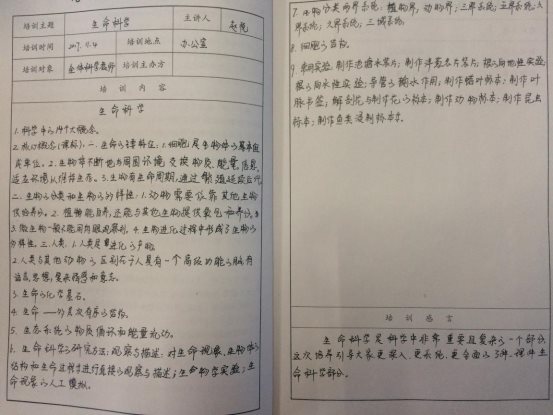 培训主题 生命科学 主讲人
培训时间 2017.11.4 培训地点 办公室
培训对象 全体科学教师 培训主办方
培 训 内 容
生命科学
1. 科学中的14个大概念。
2. 核心概念(课标)。一、生命的特征: 1. 细胞是生物体的基本组
成单位。2. 生物能不断地与周围环境交换物质、能量、信息,
适应环境从而维持生存。3. 生物有生命周期,通过繁殖延续后代。
二、生物的分类和生物的多样性: 1. 动物需要依靠其他生物
供给养分。2. 植物能自养,还能与其他生物提供氧气和养分。
3. 微生物一般不能用肉眼观察到。4. 生物进化过程中形成了生物的
多样性。三、人类。1. 人类是进化的产物。
2. 人类与其他动物的区别在于人具有一个高级功能的脑,有
语言、思想,复杂情学和意志。
3. 生命的化学基石。
4. 生命——的层次有序的结构。
5. 生态系统的物质循环和能量流动。
6. 生命科学的研究方法: 观察与描述: 对生命现象、生物体的
结构和生命过程等进行直接的观察与描述; 生命物学实验; 生
命现象的人工模拟。
7. 生物分类的界系统: 植物界, 动物界; 三界系统; 五界系统; 六
界系统; 三域系统。
8. 细胞的结构。
9. 制作池塘水装片; 制作洋葱表皮装片; 根的向地性实验;
根的向水性实验; 导管的输水作用; 制作蜡叶标本; 制作叶
脉书签; 解剖花与制作花的标本; 制作动物标本; 制作昆虫
标本; 制作鱼类浸制标本等。
培 训 感 言
生命科学是科学中非常重要且复杂的一个部分,
这次培训引导大家更深入、更系统、更全面的了解、理解生
命科学部分。